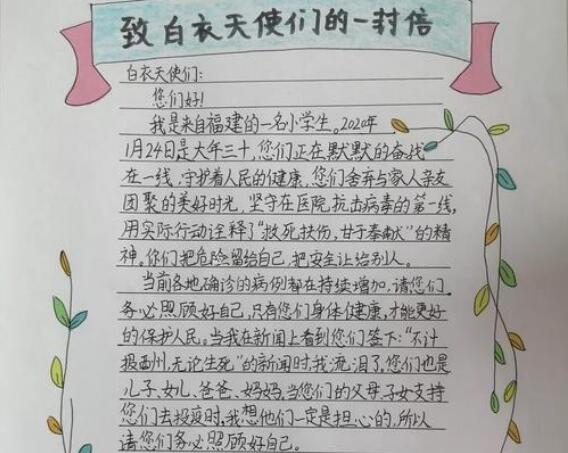 致白衣天使们的一封信
白衣天使们:
您们好!
我是来自福建的一名小学生。2020年
1月24日是大年三十,您们正在默默的奋战
在一线,守护着人民的健康,您们舍弃与家人亲友
团聚的美好时光,坚守在医院抗击病毒的第一线,
用实际行动诠释了"救死扶伤,甘于奉献"的精
神。你们把危险留给自己,把安全让给别人。
当前各地确诊的病例都在持续增加,请您们
务必照顾好自己,只有您们身体健康,才能更好
的保护人民。当我在新闻上看到您们签下:"不计
报酬,无论生死"的新闻时,我流泪了,您们也是
儿子、女儿、爸爸、妈妈,当您们的父母、子女支持
您们去投疫时,我想他们一定是担心的,所以
请您们务必照顾好自己。